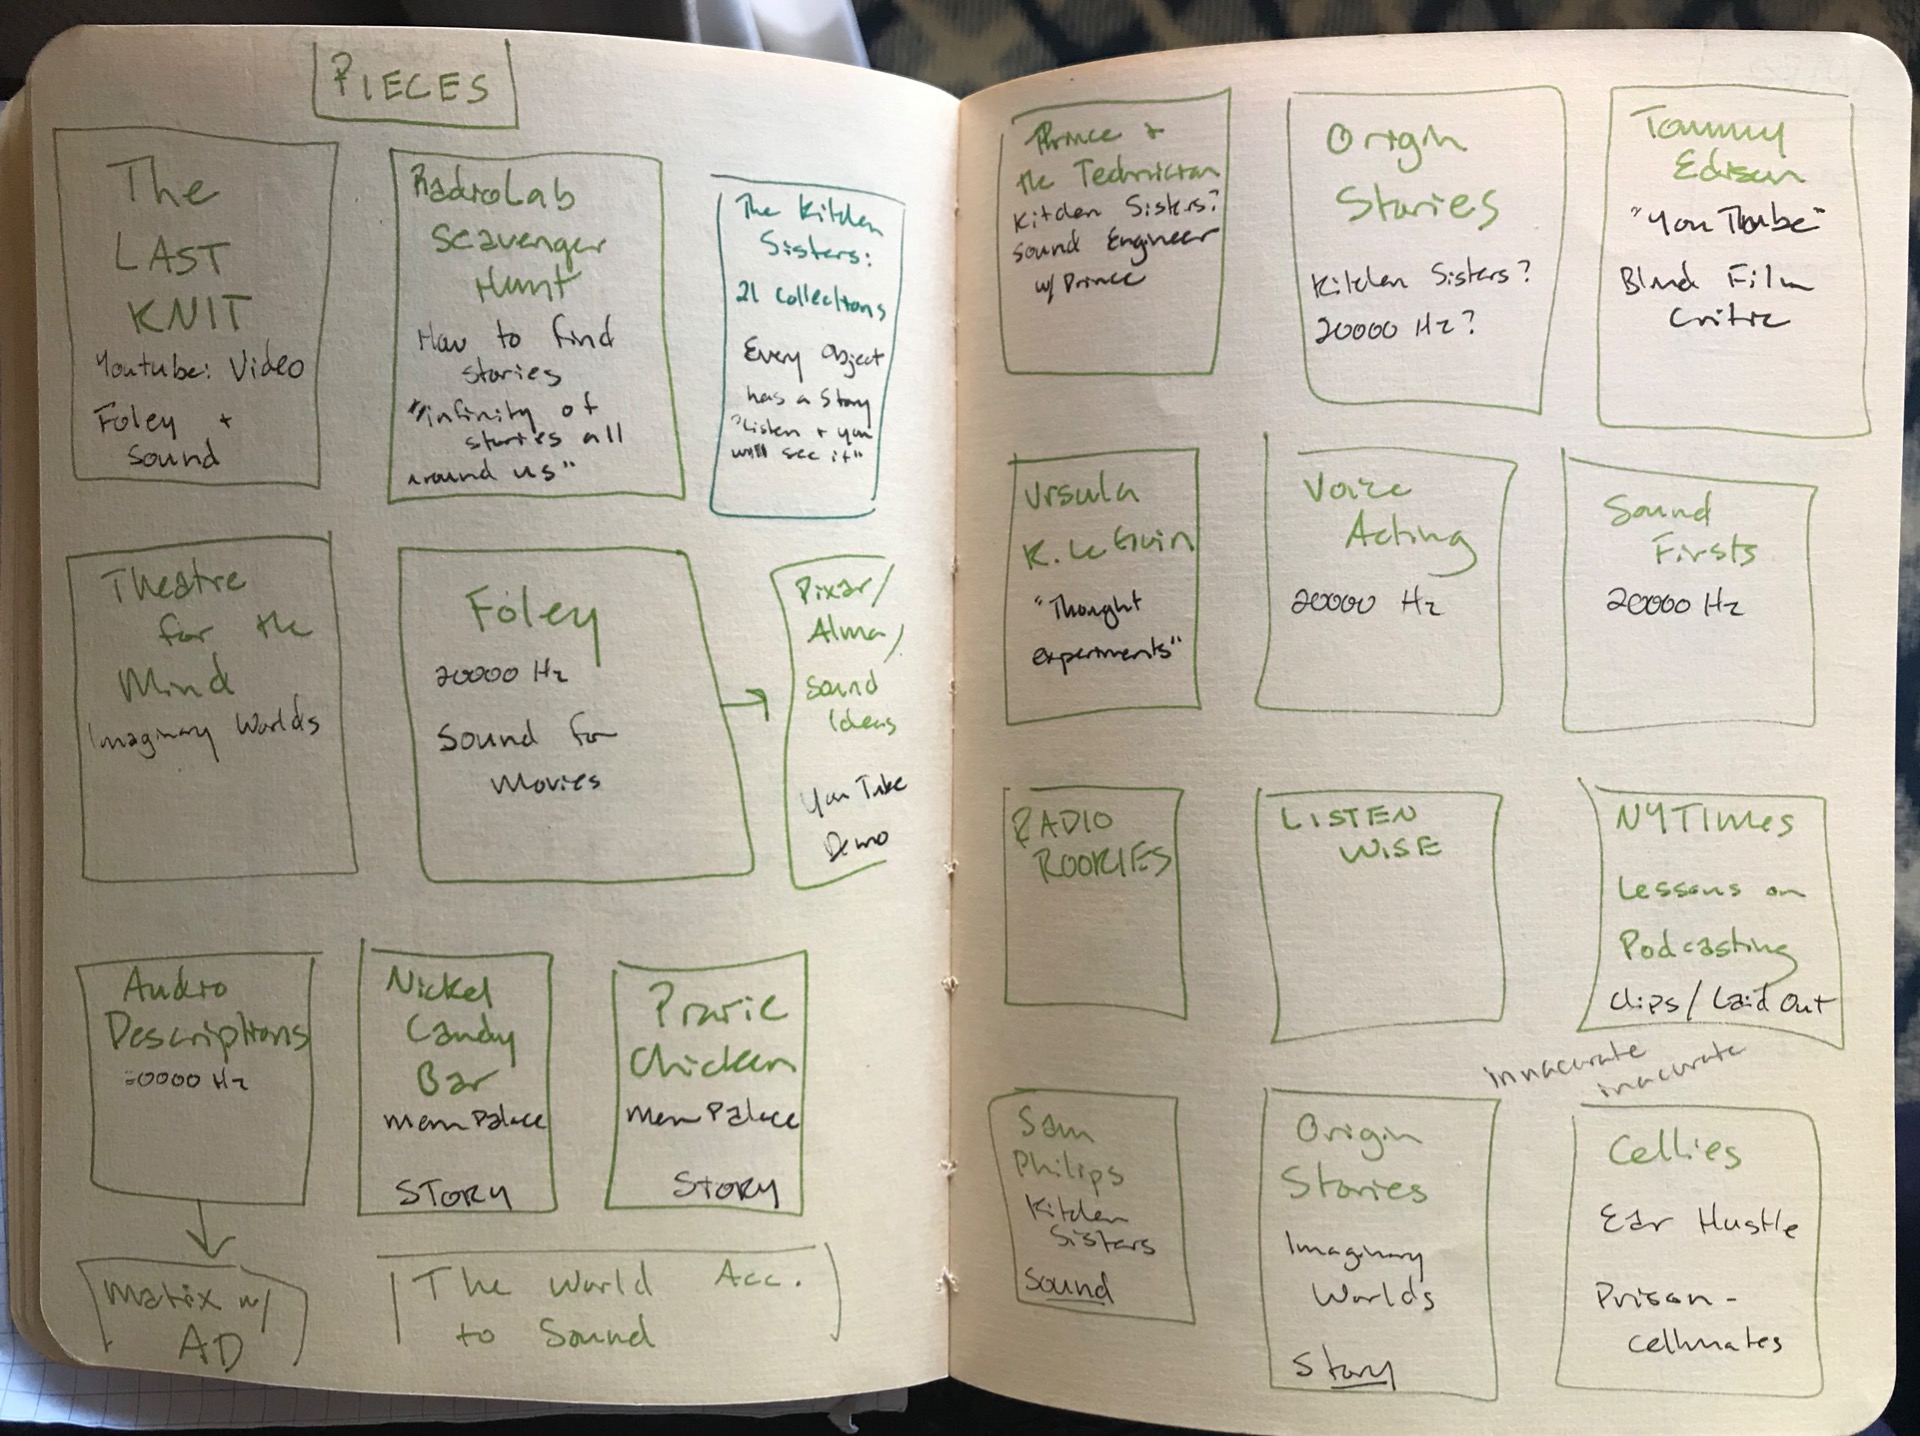 PIECES
The
LAST
KNIT
Youtube: Video
Foley +
Sound
RadioLab
Scavenger
Hunt
How to find
stories
"infinity of
stories all
around us"
The Kitchen
Sisters:
21 Collections
Every Object
has a Story
"Listen + you
will see it"
Theatre
for the
Mind
Imaginary Worlds
Foley
20000 Hz
Sound for
Movies
Pixar/
Alma/
Sound
Ideas
YouTube
Demo
Audio
Descriptions
20000 Hz
Nickel
Candy
Bar
Mem Palace
STORY
Prarie
Chicken
Mem Palace
STORY
Matrix w/
AD
The World Acc.
to Sound
Prince +
the Technician
Kitchen Sisters?
Sound Engineer
w/ Prince
Origin
Stories
Kitchen Sisters?
20000 Hz?
Tommy
Edison
Blind Film
Critic
Ursula
K. Le Guin
"Thought
experiments"
Voice
Acting
20000 Hz
Sound
Firsts
20000 Hz
RADIO
ROOKIES
LISTEN
WISE
NYTIMES
Lessons on
Podcasting
Clips/Laid Out
innacurate
inacurate
Sam
Philips
Kitchen
Sisters
Sound
Origin
Stories
Imaginary
Worlds
Story
Cellies
Ear Hustle
Prison-
cellmates